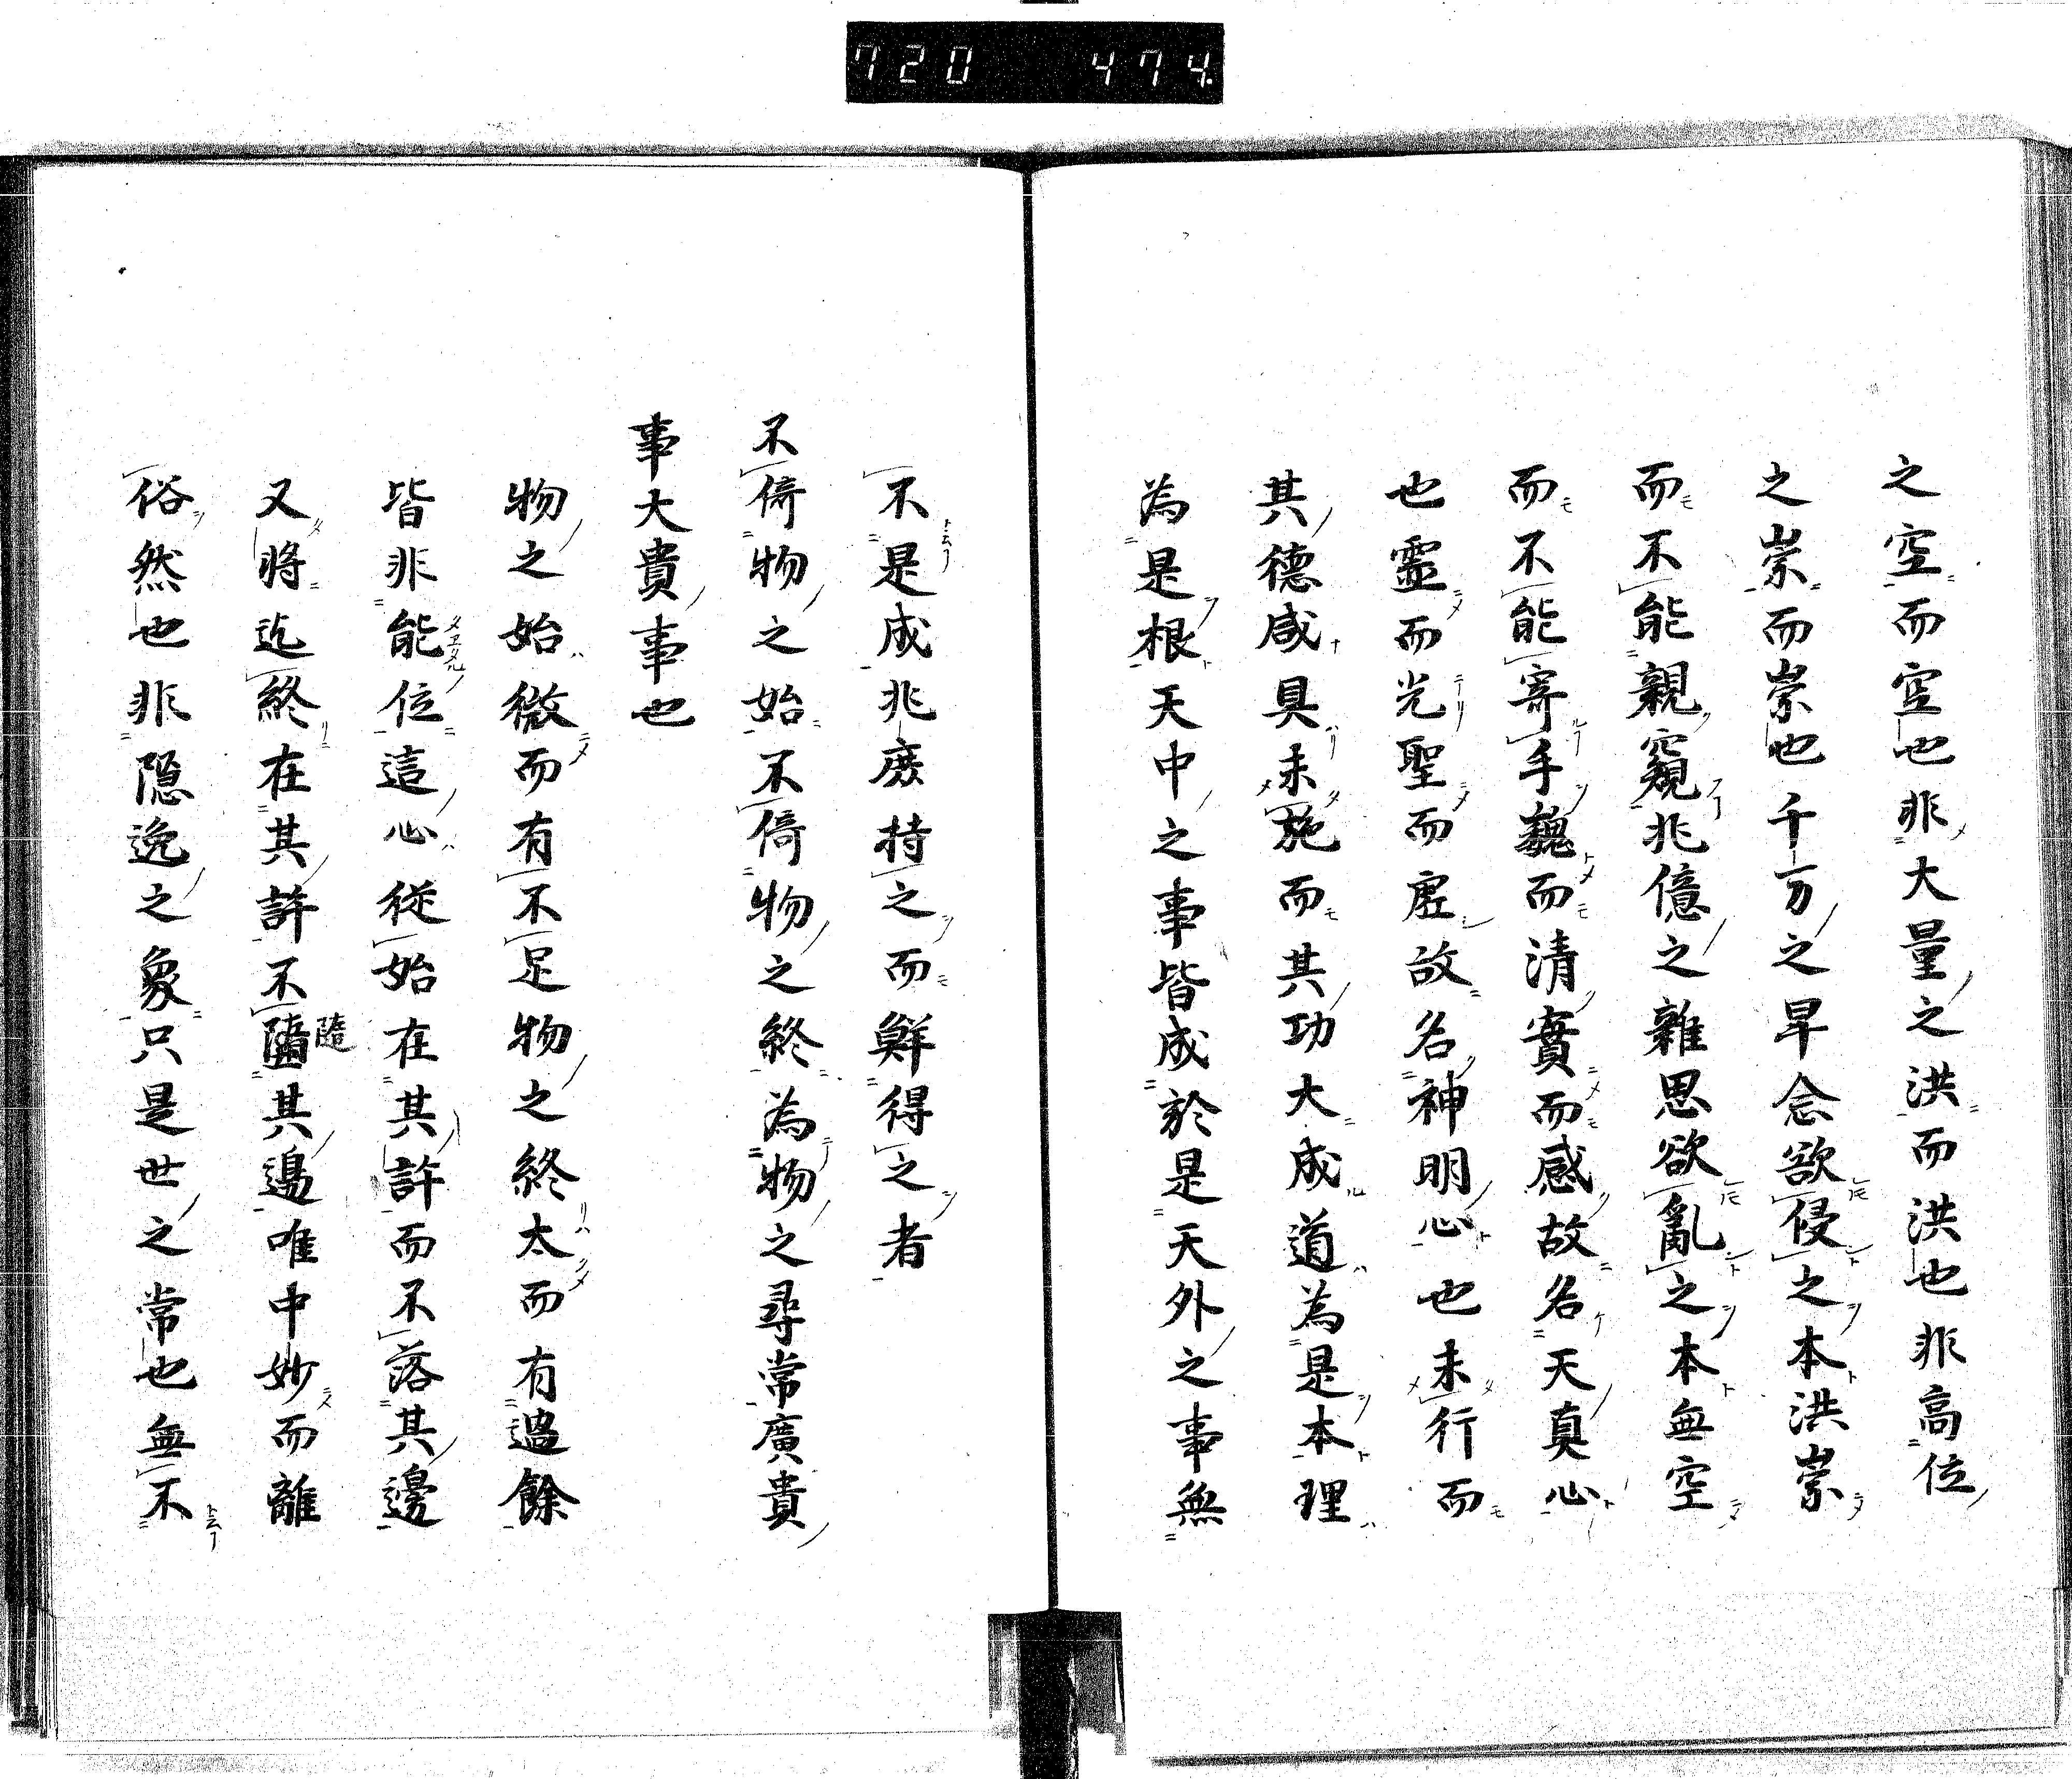 720 474
之空而空也非大量之洪而洪也非高位
之崇而崇也千万之早念欲侵之本洪崇
而不能親窺兆億之雜思欲亂之本無空
而不能寄手巍而清實而感故名天真心
也靈而光聖而虛故名神明心也未行而
其德咸具未施而其功大成道為是本理
為是根天中之事皆成於是天外之事無
不是成兆庶持之而鮮得之者
不倚物之始不倚物之終為物之尋常廣貴
事大貴事也
物之始微而有不足物之終太而有過餘
皆非能位這心從始在其許而不落其邊
又將迄終在其許不隨其邊唯中妙而離
隨
俗然也非隱逸之象只是世之常也無不